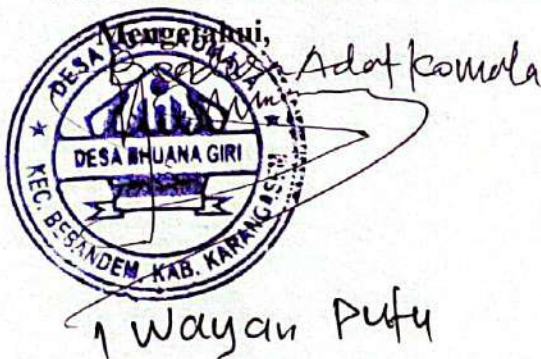 Mengetahui,
Adat Komala
DESA ADAT KOMALA
DESA BHUANA GIRI
KEC. BEBANDEM, KAB. KARANGASEM
I Wayan Putu